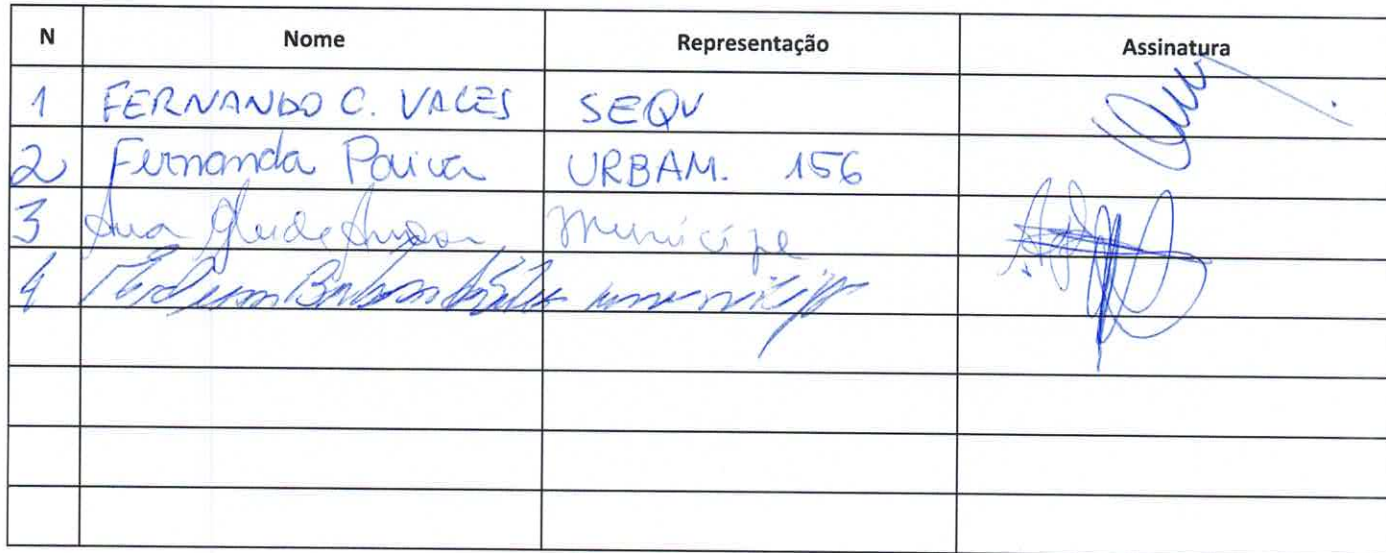 N Nome Representação Assinatura
1 FERNANDO C. VALES SEQV
2 Fernanda Paiva URBAM. 156
3 Ana Munícipe
4 munícipe